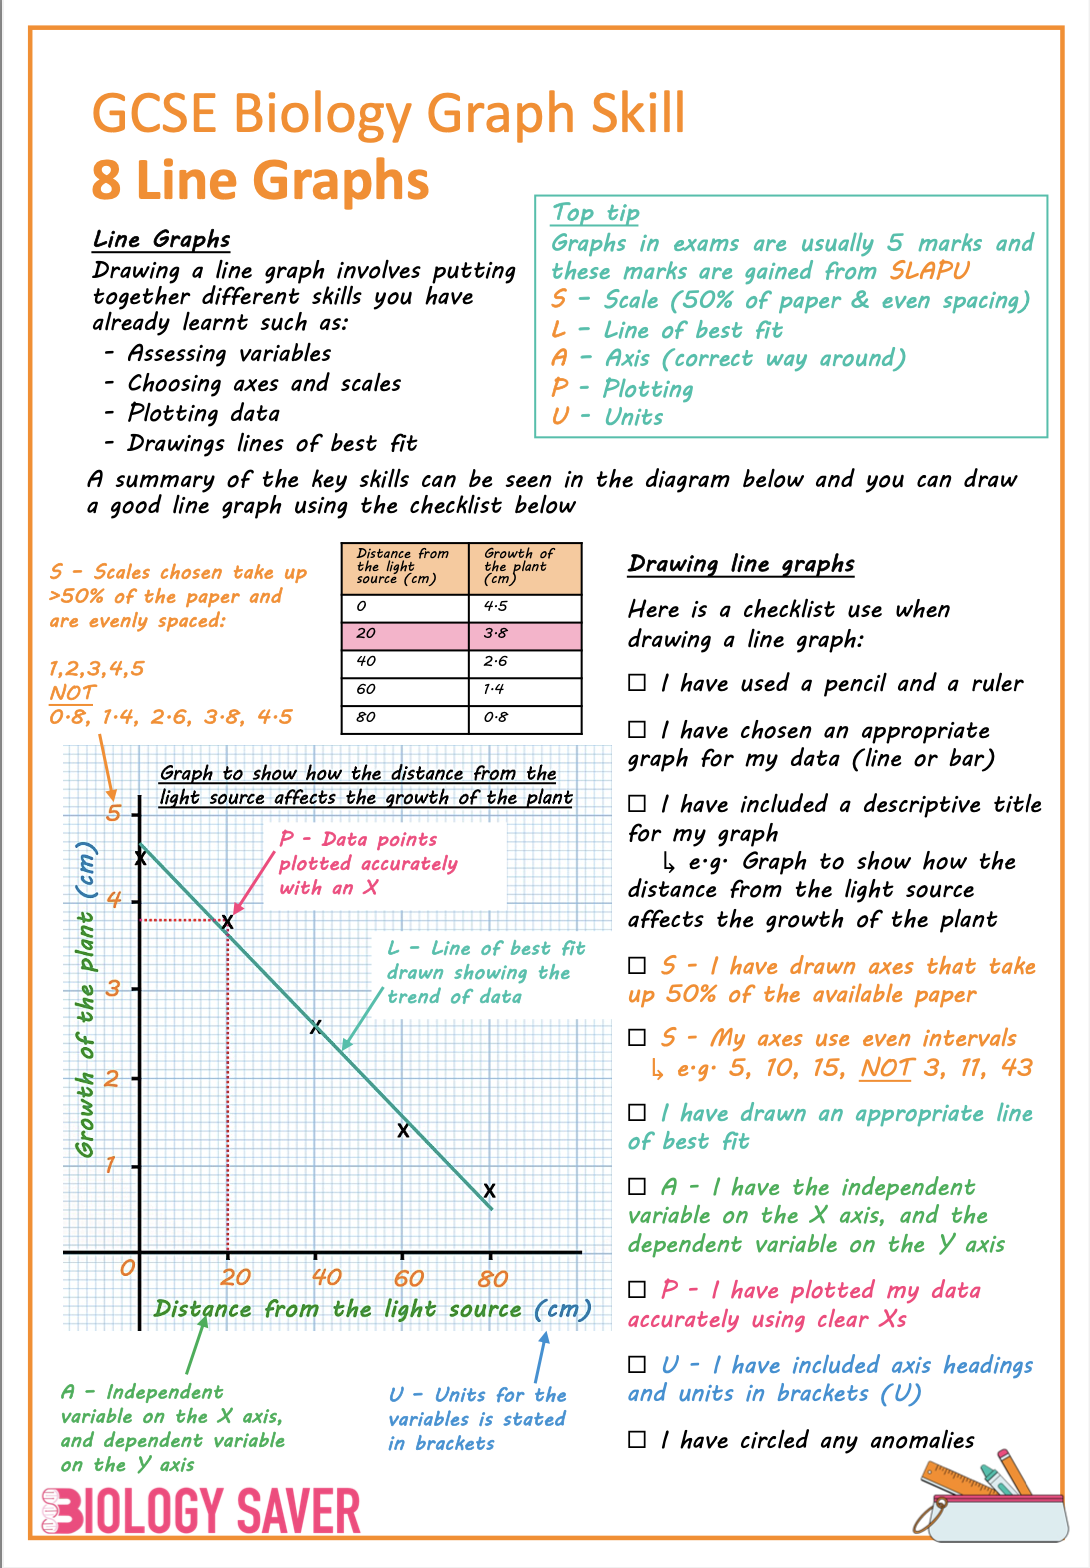 GCSE Biology Graph Skill
8 Line Graphs
Line Graphs
Drawing a line graph involves putting
together different skills you have
already learnt such as:
- Assessing variables
- Choosing axes and scales
- Plotting data
- Drawings lines of best fit
Top tip
Graphs in exams are usually 5 marks and
these marks are gained from SLAPU
S - Scale (50% of paper & even spacing)
L - Line of best fit
A - Axis (correct way around)
P - Plotting
U - Units
A summary of the key skills can be seen in the diagram below and you can draw
a good line graph using the checklist below
S - Scales chosen take up
>50% of the paper and
are evenly spaced:
1,2,3,4,5
NOT
0·8, 1·4, 2·6, 3·8, 4·5
Distance from
the light
source (cm)
Growth of
the plant
(cm)
0 4·5
20 3·8
40 2·6
60 1·4
80 0·8
Graph to show how the distance from the
light source affects the growth of the plant
P - Data points
plotted accurately
with an X
L - Line of best fit
drawn showing the
trend of data
Growth of the plant (cm)
5
4
3
2
1
0
20 40 60 80
X
X
X
X
X
Distance from the light source (cm)
A - Independent
variable on the X axis,
and dependent variable
on the Y axis
U - Units for the
variables is stated
in brackets
Drawing line graphs
Here is a checklist use when
drawing a line graph:
☐ I have used a pencil and a ruler
☐ I have chosen an appropriate
graph for my data (line or bar)
☐ I have included a descriptive title
for my graph
↳ e·g· Graph to show how the
distance from the light source
affects the growth of the plant
☐ S - I have drawn axes that take
up 50% of the available paper
☐ S - My axes use even intervals
↳ e·g· 5, 10, 15, NOT 3, 11, 43
☐ I have drawn an appropriate line
of best fit
☐ A - I have the independent
variable on the X axis, and the
dependent variable on the Y axis
☐ P - I have plotted my data
accurately using clear Xs
☐ U - I have included axis headings
and units in brackets (U)
☐ I have circled any anomalies
BIOLOGY SAVER